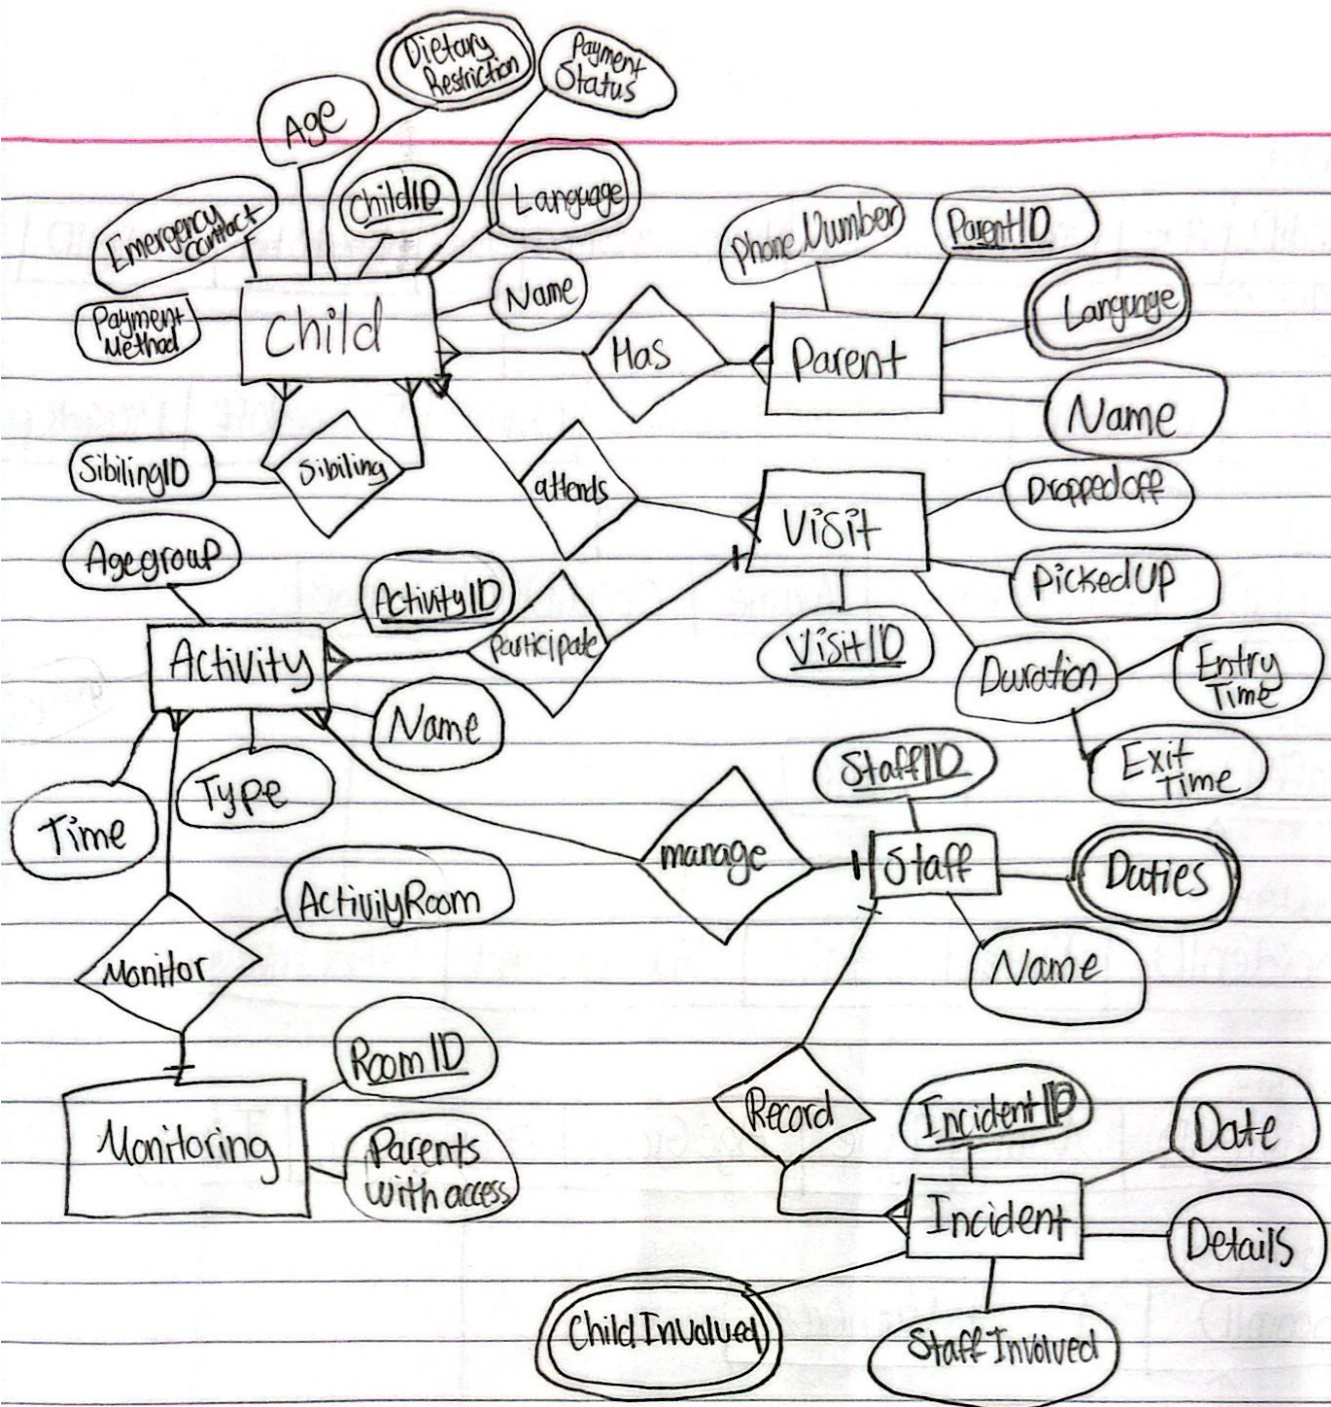 Dietary
Restriction
Payment
Status
Age
ChildID
Language
Emergency
contact
Payment
Method
Child
Name
Has
phoneNumber
ParentID
Language
Parent
Name
SibilingID
Sibiling
attends
Visit
Droppedoff
PickedUp
VisitID
Duration
Entry
Time
Exit
Time
Agegroup
ActivityID
participate
Activity
Name
Time
Type
StaffID
manage
Staff
Duties
Name
ActiviyRoom
Monitor
RoomID
Monitoring
Parents
with access
Record
IncidentID
Date
Incident
Details
Child Involved
Staff Involved